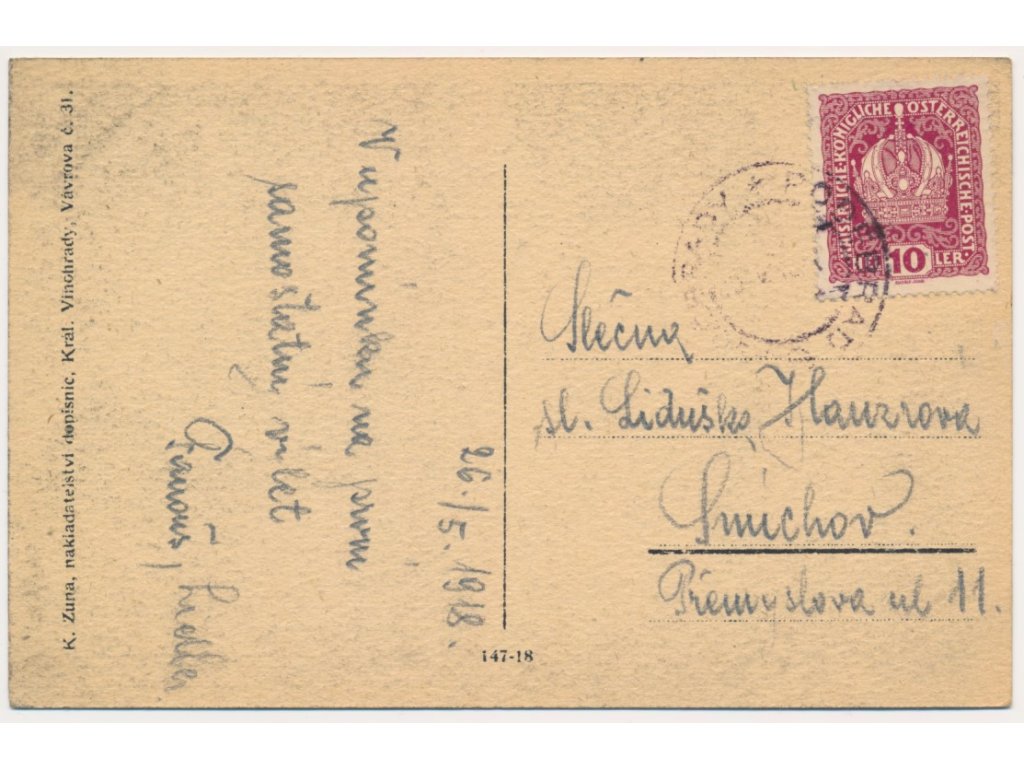 K. Zuna, nakladatelství dopisnic, Král. Vinohrady, Vávrova č. 31.
V upomínku na první
samostatný výlet
26./5. 1918.
147-18
KAISERLICHE·KÖNIGLICHE ÖSTERREICHISCHE·POST·
10
Slečna
sl. Liduška Hauzrova
Smíchov.
Přemyslova ul 11.